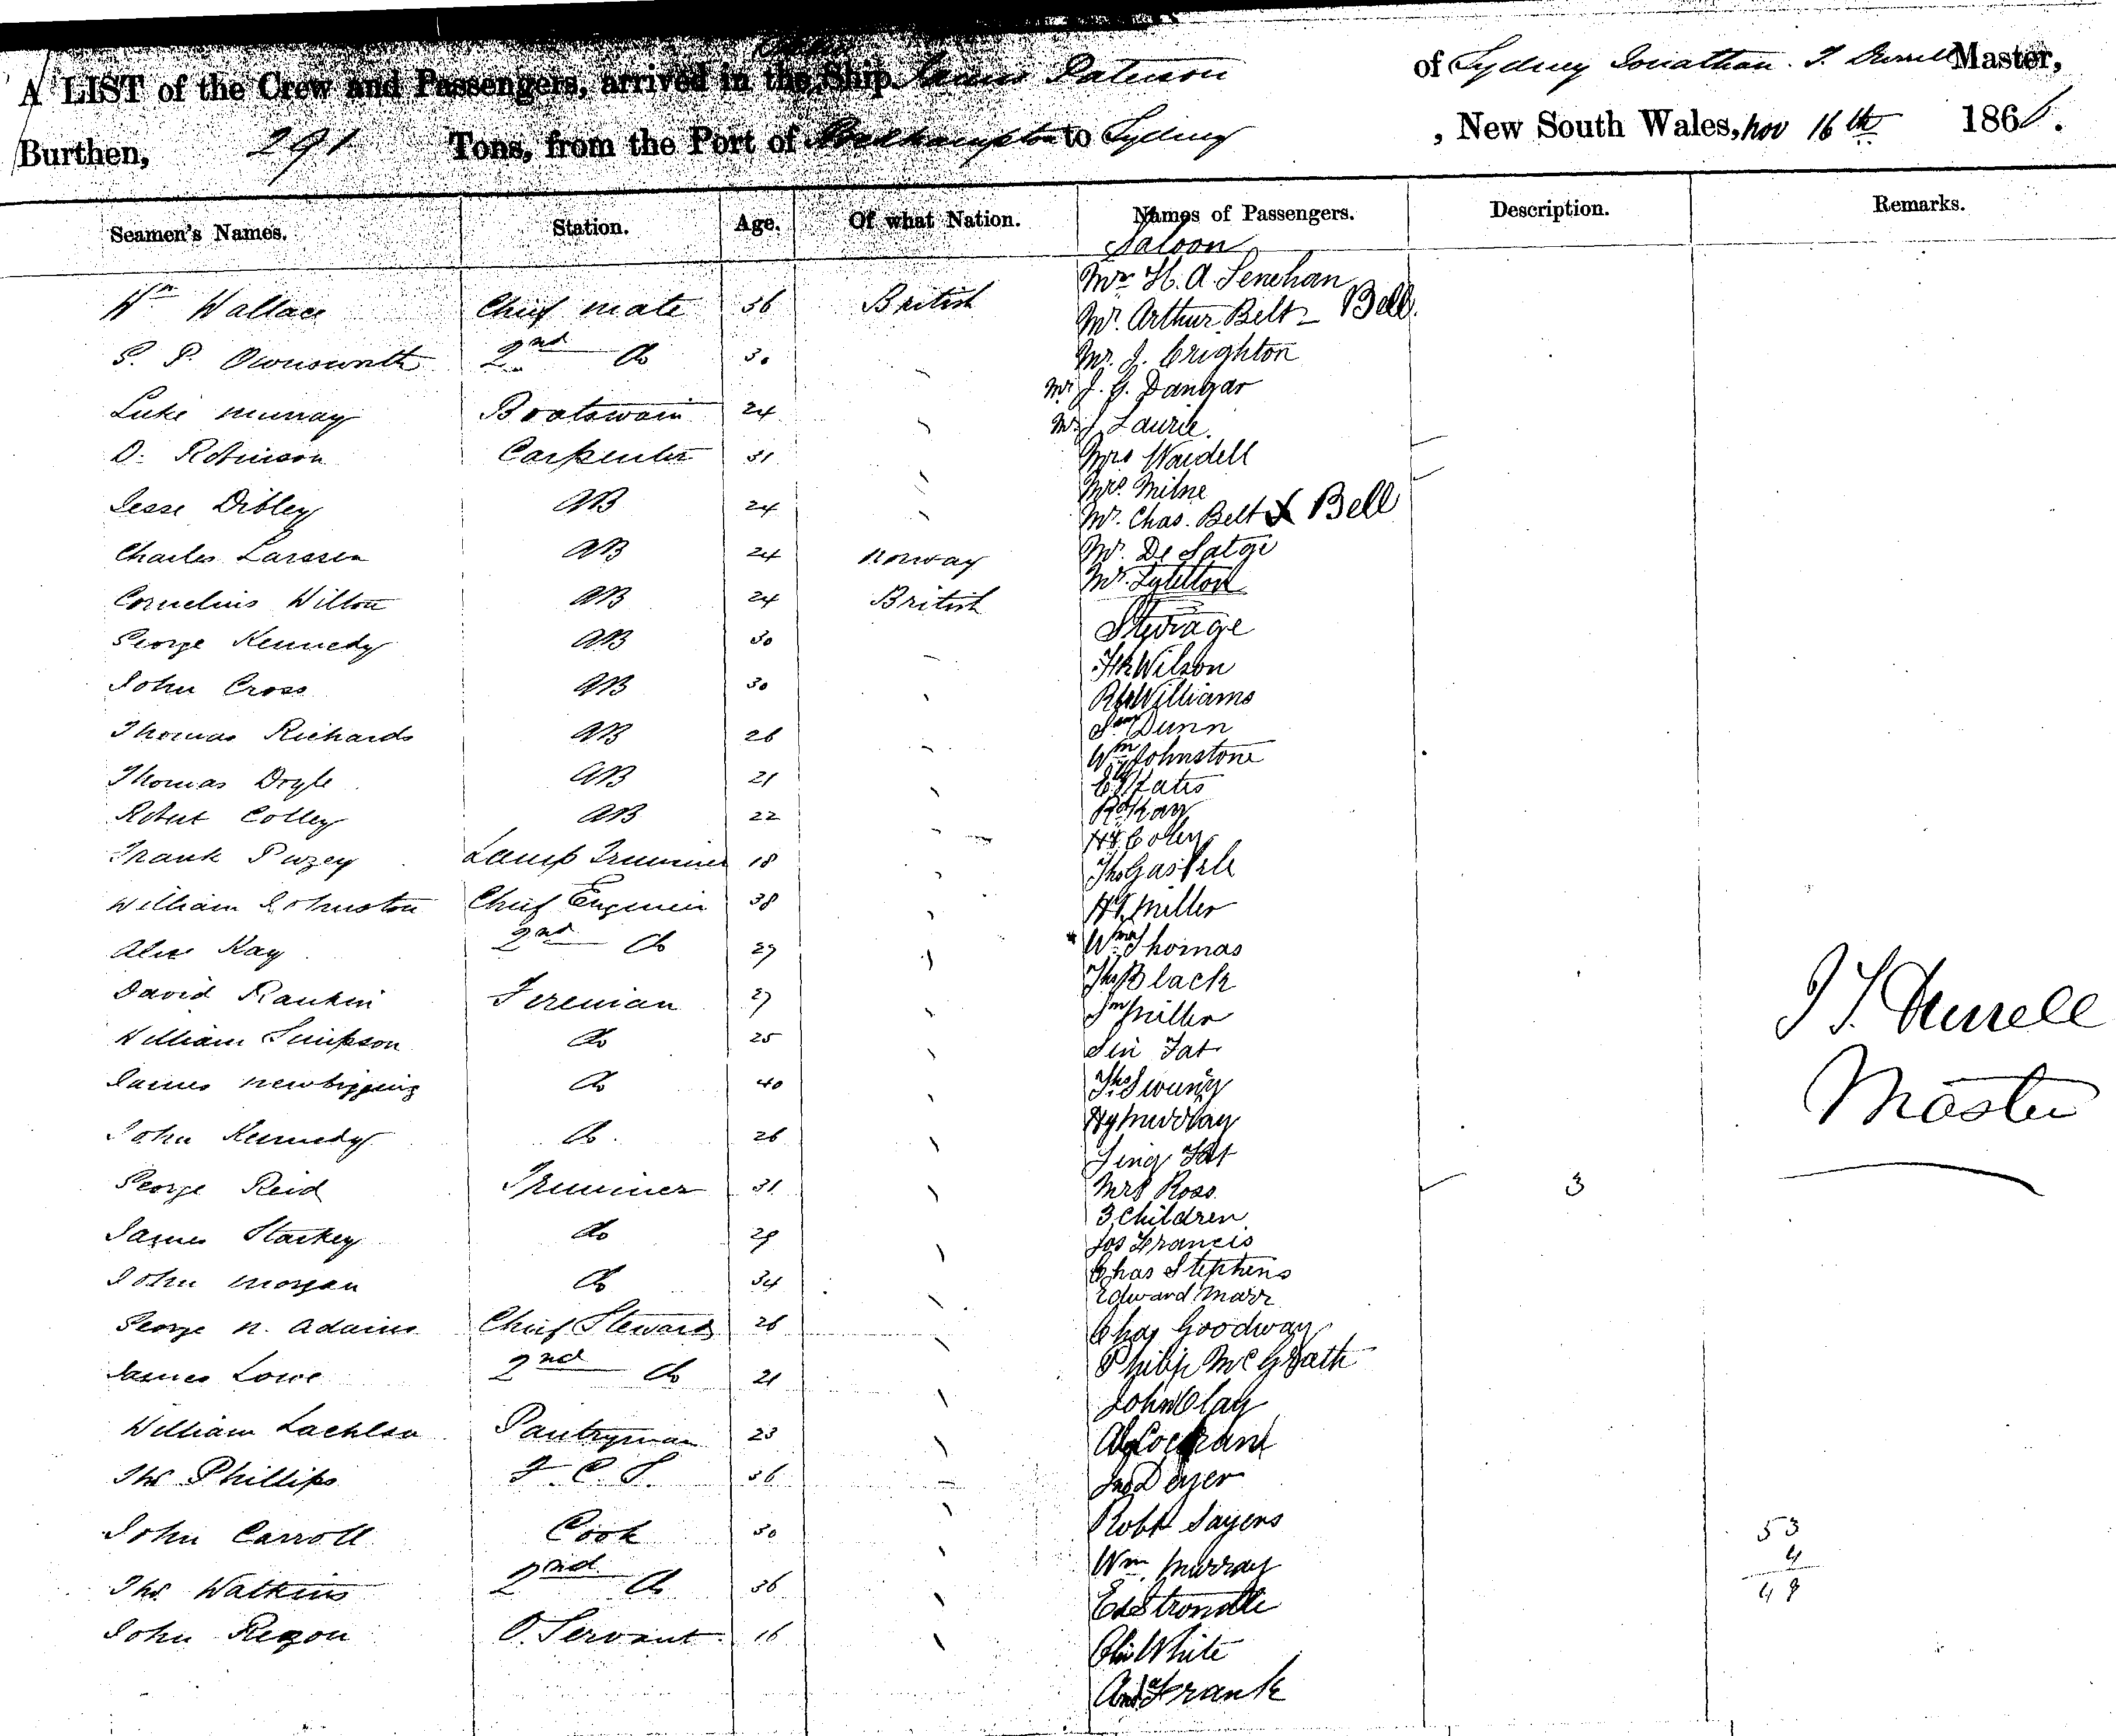 A LIST of the Crew and Passengers, arrived in the Ship James Paterson of Sydney Jonathan T. Durrell Master,
Burthen, 291 Tons, from the Port of Rockhampton to Sydney, New South Wales, Nov 16th 1866.
Seamen's Names. Station. Age. Of what Nation. Names of Passengers. Description. Remarks.
Wm Wallace Chief mate 36 British
S. P. 2nd Do 30
Luke Murray Boatswain 24
D. Robinson Carpenter 31
Jesse Dibley AB 24
Charles Larssen AB 24 Norway
Cornelius Wilton AB 24 British
George Kennedy AB 30
John Cross AB 30
Thomas Richards AB 26
Thomas Doyle AB 21
Robert Colley AB 22
Frank Puzey Lamp Trimmer 18
William Johnston Chief Engineer 38
Alex Kay 2nd Do 27
David Rankin Fireman 27
William Simpson Do 25
James Newbigging Do 40
John Kennedy Do 26
George Reid Trimmer 31
James Starkey do 29
John Morgan Do 34
George N. Adams Chief Steward 26
James Lowe 2nd Do 21
William Lachlan Pantryman 23
Thos Phillips F. C. S. 36
John Carroll Cook 30
Thos Watkins 2nd Do 36
John Regon O. Servant 16
Saloon
Mr H. A. Lenehan
Mr. Arthur Belt - Bell.
Mr. J. Crighton
Mr J. G. Dangar
Mr J Laurie.
Mrs Wardell
Mrs. Milne
Mr. Chas. Belt X Bell
Mr. De Satge
Mr. Lyttelton
Steerage
Wilson
Williams
Saml Dunn
Wm Johnstone
Kay
Hy Coley
Thos Gaskele
Hy Miller
Wm Thomas
Thos Black
Miller
Sin Fat
Thos Swuny
Hy Murray
Ling Fat
Mrs Ross
3 Children 3
Jos Francis
Chas Stephens
Edward Marr
Chas Goodway
Philip McGrath
John Clay
Cochrane
Jno Dwyer
Robt Sayers
Wm. Murray
White
Frank
J T. Durrell
Master
53
4
49